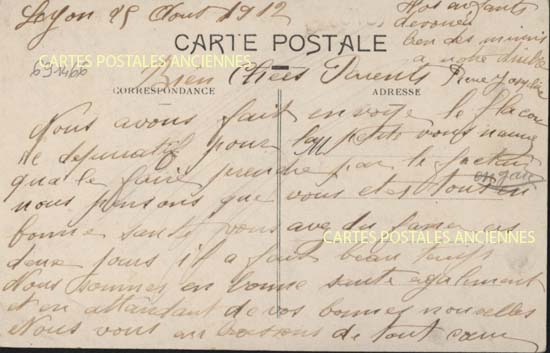 Lyon 25 Aout 1912
Vos enfants
devoués
bien des mimis
a notre
CARTES POSTALES ANCIENNES
CARTE POSTALE
69-1466
Bien Chers Parents
CORRESPONDANCE
ADRESSE
Nous avons fait envoyé le flacon
de depuratif pour la petite vous
qua le faire prendre par le facteur
nous pensons que vous etes tous en
bonne santé vous avez du
CARTES POSTALES ANCIENNES
deux jours il a fait beau temps
Nous sommes en bonne santé egalement
et en attendant de vos bonnes nouvelles
Nous vous embrassons de tout coeur